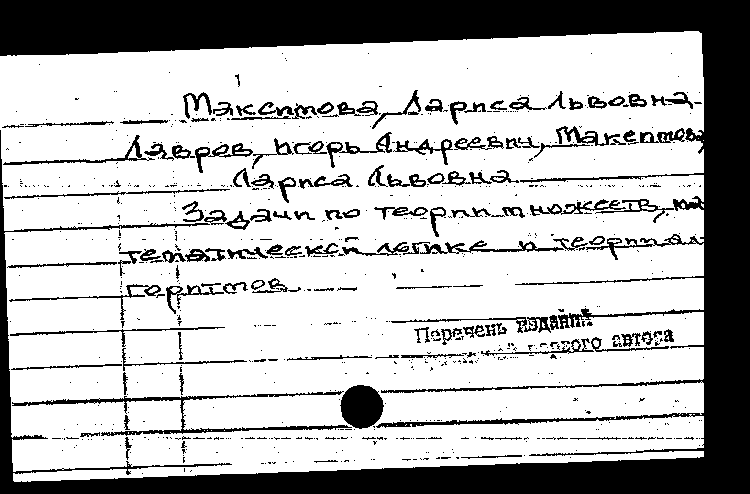 Максимова, Лариса Львовна.
Лавров, Игорь Андреевич, Максимова,
Лариса Львовна
Задачи по теории множеств, ма
тематической логике и теории ал
горитмов
Перечень изданий
первого автора